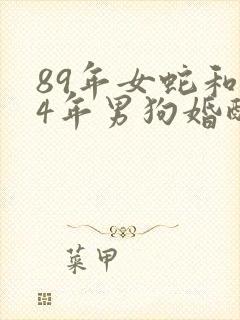 89年女蛇和
4年男狗婚
菜甲